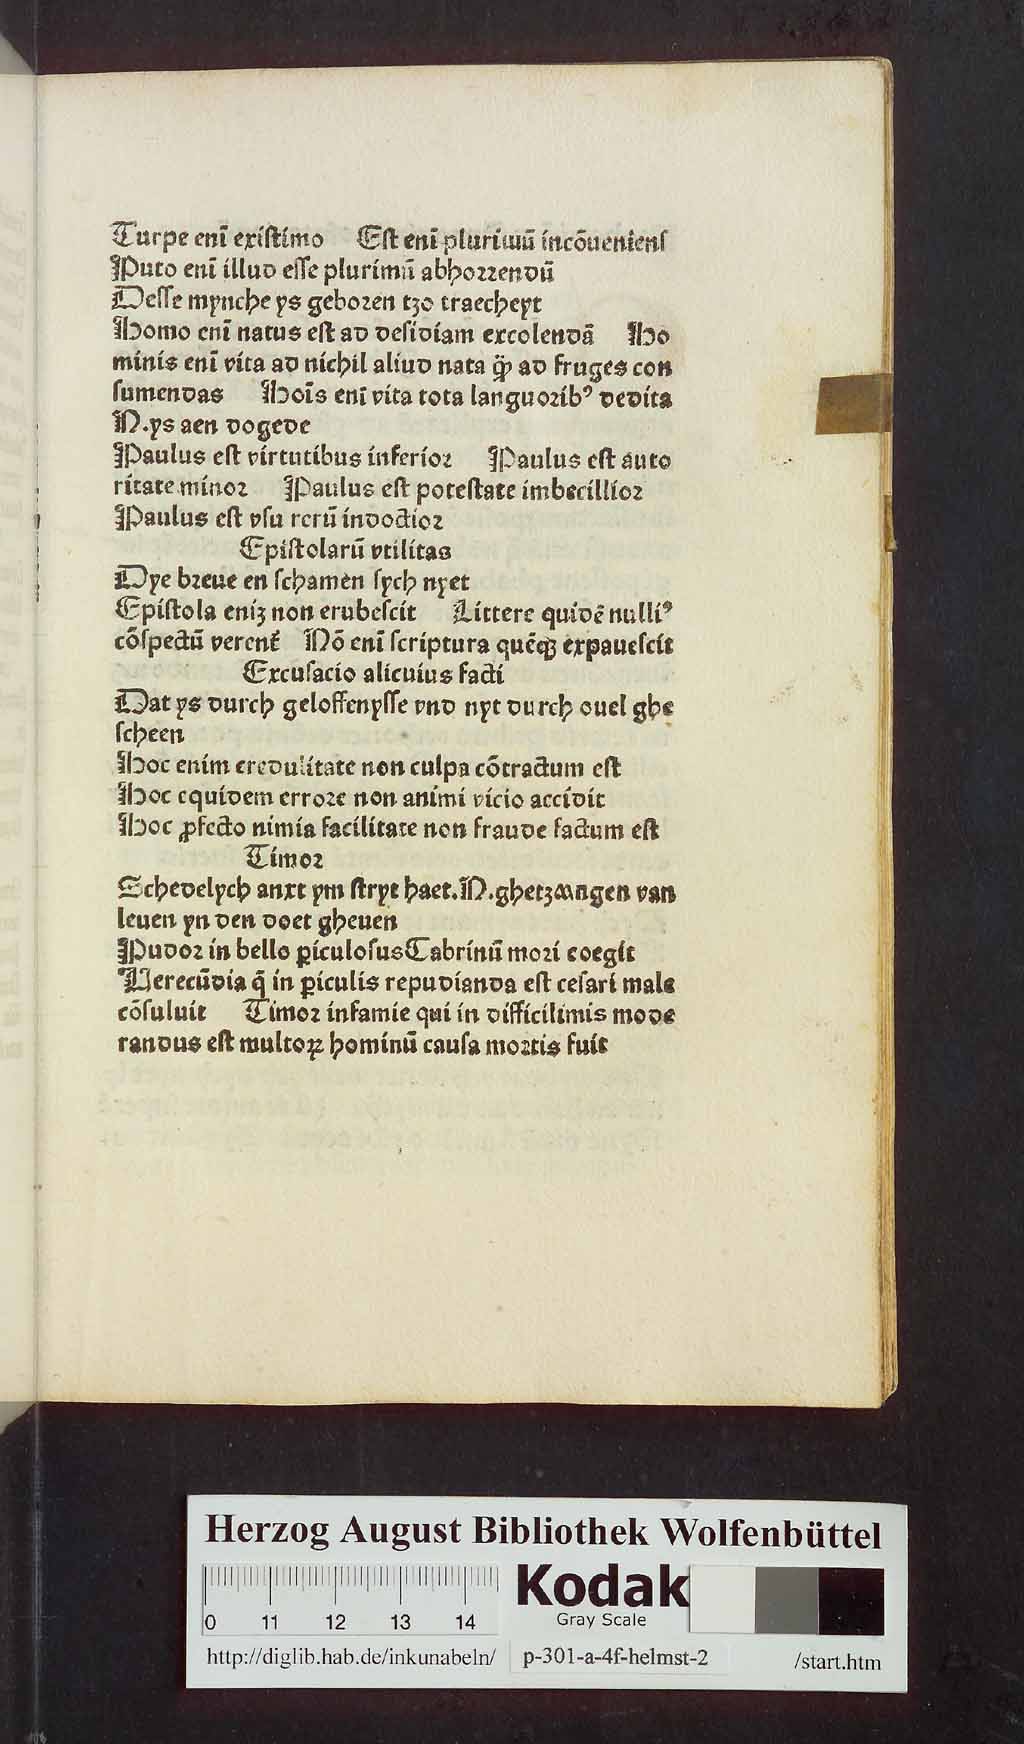 Turpe enī exiſtimo Eſt enī plurimū incōueniens
Puto enī illud eſſe plurimū abhorrendū
Deſſe mynche ys geboren tzo traecheyt
Homo enī natus eſt ad deſidiam excolendā Ho
minis enī vita ad nichil aliud nata q̄ȝ ad fruges con
ſumendas Hoīs enī vita tota languoribꝰ dedita
N. ys aen dogede
Paulus eſt virtutibus inferior Paulus eſt auto
ritate minor Paulus eſt poteſtate imbecillior
Paulus eſt vſu rerū indoctior
Epiſtolarū vtilitas
Dye breue en ſchamen ſych nyet
Epiſtola eniȝ non erubeſcit Littere quidē nulliꝰ
cōſpectū verent᷑ Nō enī ſcriptura quēqȝ expaueſcit
Excuſacio alicuius facti
Dat ys durch geloffenyſſe vnd nyt durch ouel ghe
ſcheen
Hoc enim credulitate non culpa cōtractum eſt
Hoc equidem errore non animi vicio accidit
Hoc ꝓfecto nimia facilitate non fraude factum eſt
Timor
Schedelych anxt ym ſtryt haet. N. ghetzwngen van
leuen yn den doet gheuen
Pudor in bello ꝑiculoſus Cabrinū mori coegit
Verecūdia q̄ in ꝑiculis repudianda eſt ceſari male
cōſuluit Timor infamie qui in difficilimis mode
randus eſt multoꝝ hominū cauſa mortis fuit
Herzog August Bibliothek Wolfenbüttel
Kodak
Gray Scale
0 11 12 13 14
http://diglib.hab.de/inkunabeln/ p-301-a-4f-helmst-2 /start.htm